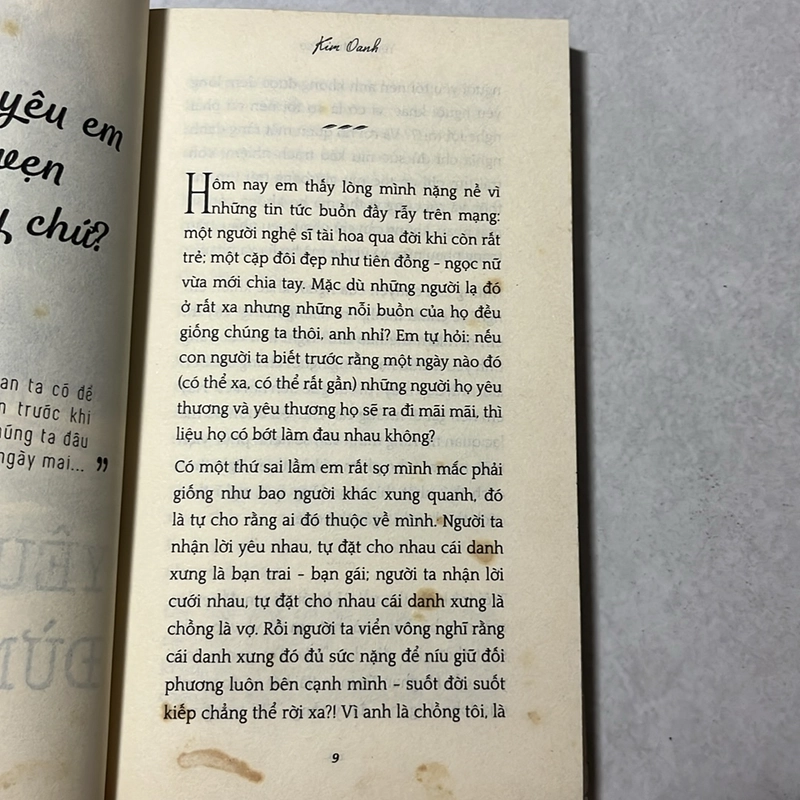 yêu em
vẹn
chứ?
ta có để
trước khi
ta đâu
ngày mai... ”
Kim Oanh
Hôm nay em thấy lòng mình nặng nề vì
những tin tức buồn đầy rẫy trên mạng:
một người nghệ sĩ tài hoa qua đời khi còn rất
trẻ; một cặp đôi đẹp như tiên đồng – ngọc nữ
vừa mới chia tay. Mặc dù những người lạ đó
ở rất xa nhưng những nỗi buồn của họ đều
giống chúng ta thôi, anh nhỉ? Em tự hỏi: nếu
con người ta biết trước rằng một ngày nào đó
(có thể xa, có thể rất gần) những người họ yêu
thương và yêu thương họ sẽ ra đi mãi mãi, thì
liệu họ có bớt làm đau nhau không?
Có một thứ sai lầm em rất sợ mình mắc phải
giống như bao người khác xung quanh, đó
là tự cho rằng ai đó thuộc về mình. Người ta
nhận lời yêu nhau, tự đặt cho nhau cái danh
xưng là bạn trai – bạn gái; người ta nhận lời
cưới nhau, tự đặt cho nhau cái danh xưng là
chồng là vợ. Rồi người ta viển vông nghĩ rằng
cái danh xưng đó đủ sức nặng để níu giữ đối
phương luôn bên cạnh mình – suốt đời suốt
kiếp chẳng thể rời xa?! Vì anh là chồng tôi, là
9